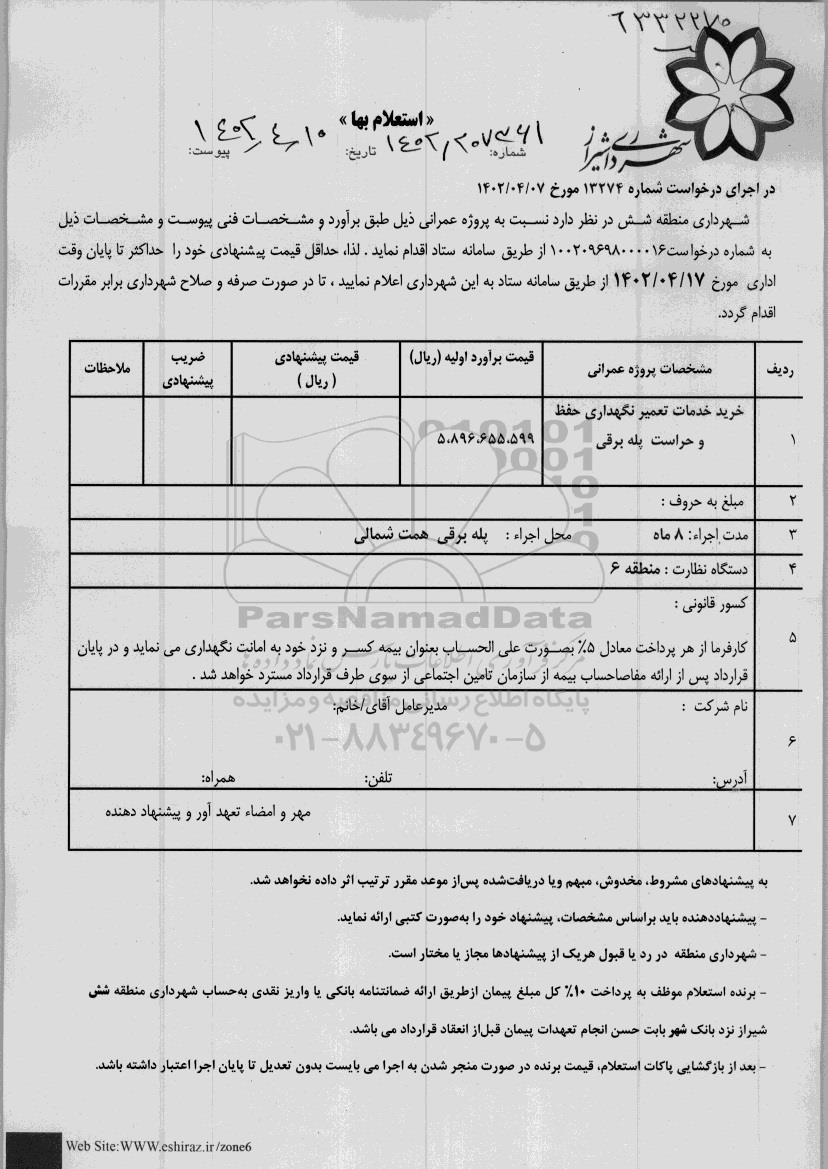 ۶۳۳۲۲۷۰
شهرداری شیراز
« استعلام بها »
شماره: تاریخ: ۱۴۰۲/۴/۱۰ پیوست:
در اجرای درخواست شماره ۱۳۲۷۴ مورخ ۱۴۰۲/۰۴/۰۷
شهرداری منطقه شش در نظر دارد نسبت به پروژه عمرانی ذیل طبق برآورد و مشخصات فنی پیوست و مشخصات ذیل
به شماره درخواست۱۰۰۲۰۹۶۹۸۰۰۰۰۱۶ از طریق سامانه ستاد اقدام نماید . لذا، حداقل قیمت پیشنهادی خود را حداکثر تا پایان وقت
اداری مورخ ۱۴۰۲/۰۴/۱۷ از طریق سامانه ستاد به این شهرداری اعلام نمایید ، تا در صورت صرفه و صلاح شهرداری برابر مقررات
اقدام گردد.
ردیف مشخصات پروژه عمرانی قیمت برآورد اولیه (ریال) قیمت پیشنهادی ( ریال ) ضریب پیشنهادی ملاحظات
۱ خرید خدمات تعمیر نگهداری حفظ
و حراست پله برقی ۵،۸۹۶،۶۵۵،۵۹۹
۲ مبلغ به حروف :
۳ مدت اجراء: ۸ ماه محل اجراء : پله برقی همت شمالی
۴ دستگاه نظارت : منطقه ۶
کسور قانونی :
۵ کارفرما از هر پرداخت معادل ۵٪ بصورت علی الحساب بعنوان بیمه کسر و نزد خود به امانت نگهداری می نماید و در پایان
قرارداد پس از ارائه مفاصاحساب بیمه از سازمان تامین اجتماعی از سوی طرف قرارداد مسترد خواهد شد .
نام شرکت : مدیرعامل آقای/خانم:
۶
آدرس: تلفن: همراه:
۷ مهر و امضاء تعهد آور و پیشنهاد دهنده
ParsNamadData
پایگاه اطلاع رسانی مناقصه و مزایده
۰۲۱-۸۸۳۴۹۶۷۰-۵
به پیشنهادهای مشروط، مخدوش، مبهم ویا دریافت‌شده پس‌از موعد مقرر ترتیب اثر داده نخواهد شد.
- پیشنهاددهنده باید براساس مشخصات، پیشنهاد خود را به‌صورت کتبی ارائه نماید.
- شهرداری منطقه در رد یا قبول هریک از پیشنهادها مجاز یا مختار است.
- برنده استعلام موظف به پرداخت ۱۰٪ کل مبلغ پیمان ازطریق ارائه ضمانتنامه بانکی یا واریز نقدی به‌حساب شهرداری منطقه شش
شیراز نزد بانک شهر بابت حسن انجام تعهدات پیمان قبل‌از انعقاد قرارداد می باشد.
- بعد از بازگشایی پاکات استعلام، قیمت برنده در صورت منجر شدن به اجرا می بایست بدون تعدیل تا پایان اجرا اعتبار داشته باشد.
Web Site:WWW.eshiraz.ir/zone6